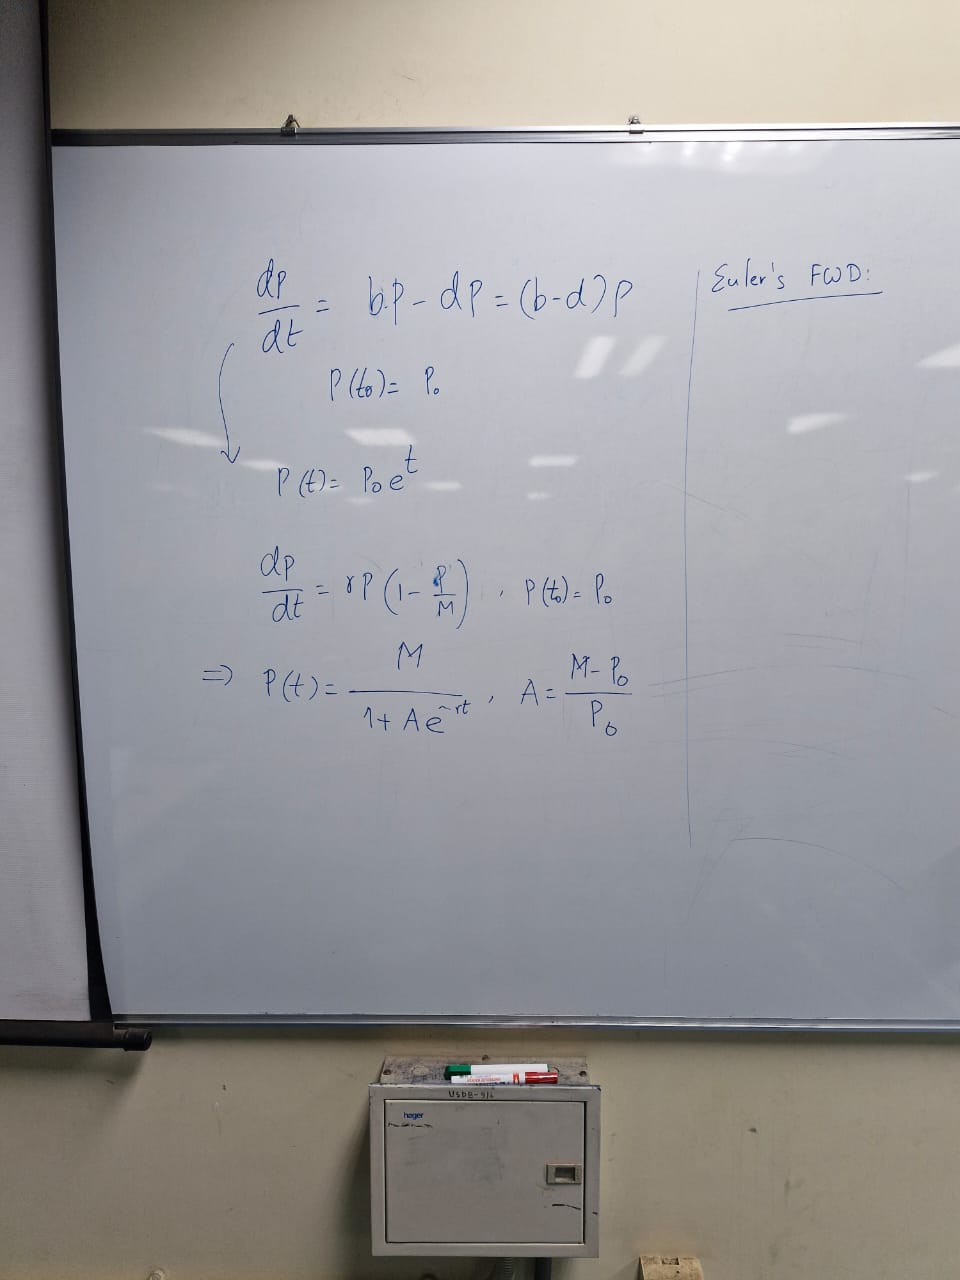 dp/dt = b.p - dp = (b-d)p
P(t₀) = P₀
P(t) = P₀ e^t
dp/dt = rP (1 - P/M) , P(t₀) = P₀
⇒ P(t) = M/(1 + A e^(-rt)) , A = (M - P₀)/P₀
Euler's FWD:
USDB-9/6
hager